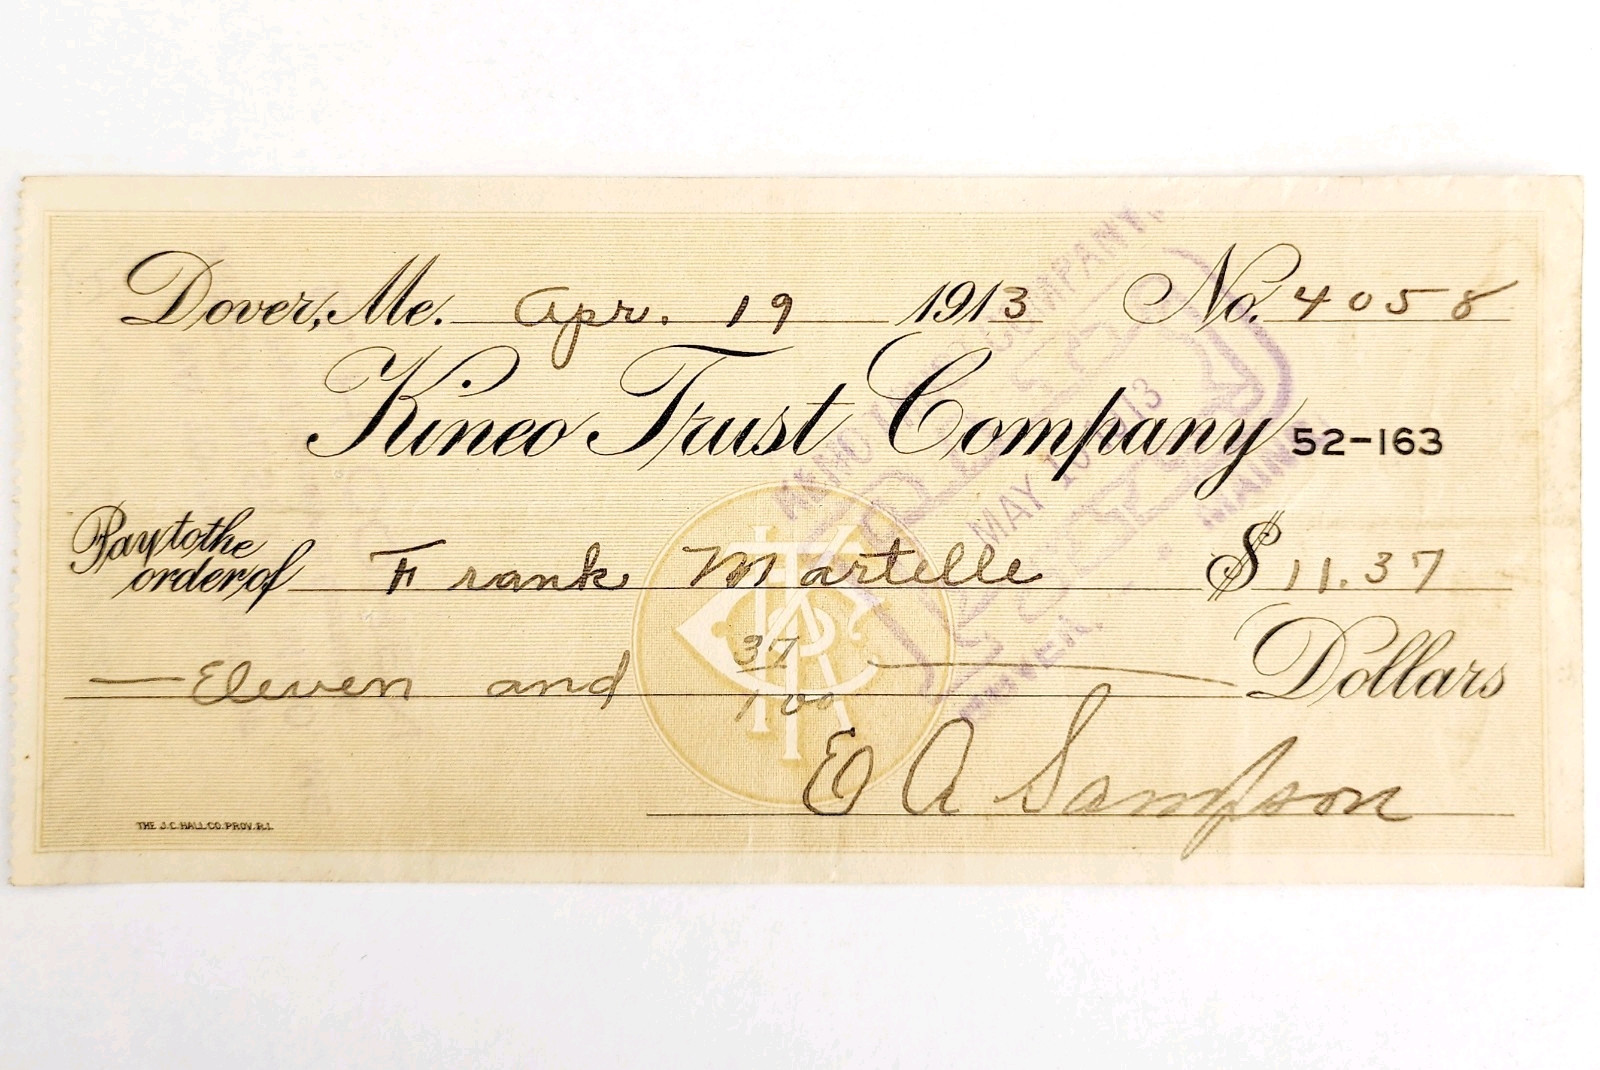 Dover, Me. Apr. 19 1913 No. 4058
Kineo Trust Company 52-163
Pay to the
order of Frank Martelle $ 11.37
Eleven and 37/100 Dollars
E A Sampson
THE J.C. HALL CO. PROV. R.I.
TRUST COMPANY,
PAID
MAY 10 1913
DOVER, MAINE